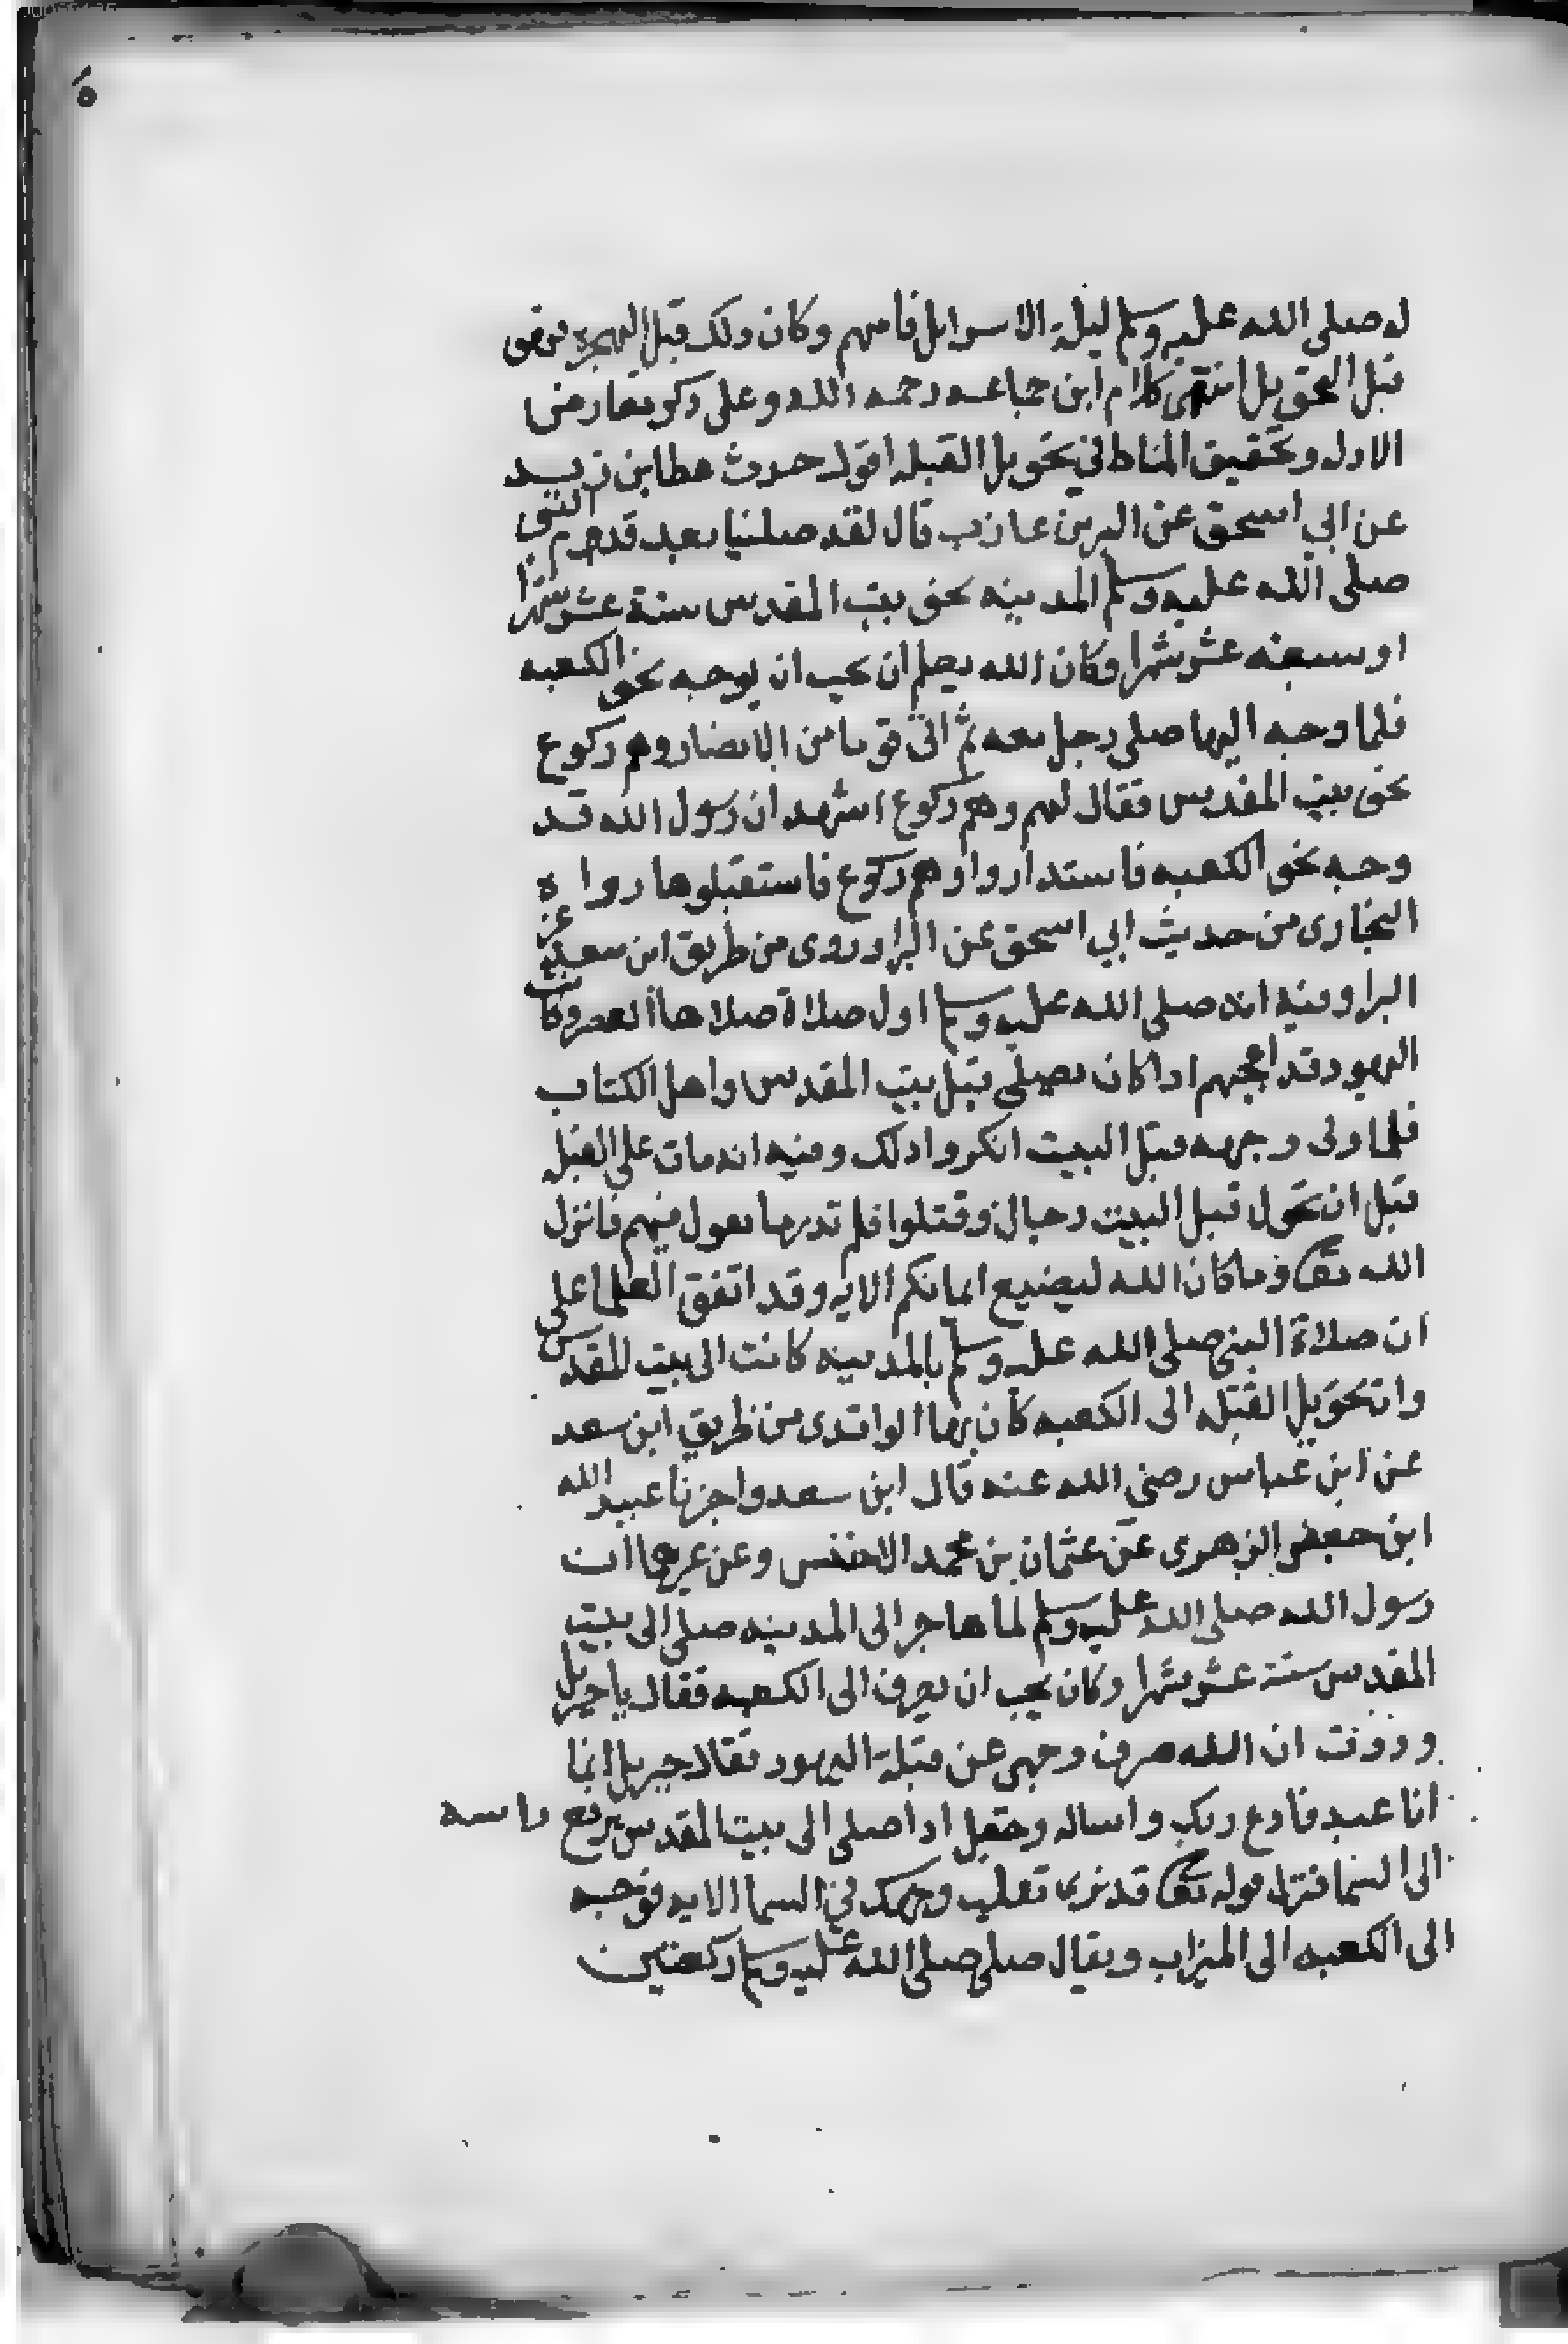 ٥
له صلى الله عليه وسلم ليلة الاسرا بل فامهم وكان ذلك قبل الهجرة فهو
قبل التحويل انتهى كلام ابن جماعه رحمه الله وعلى ذكر معارض
الاول وتحقيق المناط في تحويل القبله اقول حدث عطا بن زيد
عن ابي اسحق عن البر بن عازب قال لقد صلينا بعد قدوم النبي
صلى الله عليه وسلم المدينه نحو بيت المقدس ستة عشر شهرا
او سبعه عشر شهرا وكان الله يعلم ان يحب ان يوجه نحو الكعبه
فلما وجه اليها صلى رجل معه ثم اتى قوما من الانصار وهم ركوع
نحو بيت المقدس فقال لهم وهم ركوع اشهد ان رسول الله قد
وجه نحو الكعبه فاستداروا وهم ركوع فاستقبلوها رواه
البخارى من حديث ابي اسحق عن البرا وروى من طريق ابن سعد عن
البرا وفيه انه صلى الله عليه وسلم اول صلاة صلاها العصر وكانت
اليهود قد اعجبهم اذا كان يصلي قبل بيت المقدس واهل الكتاب
فلما ولى وجهه قبل البيت انكروا ذلك وفيه انه مات على القبله
قبل ان تحول قبل البيت رجال وقتلوا فلم ندر ما نقول فيهم فانزل
الله تعالى وما كان الله ليضيع ايمانكم الايه وقد اتفق العلما على
ان صلاة النبي صلى الله عليه وسلم بالمدينه كانت الى بيت المقدس
وان تحويل القبله الى الكعبه كان بها الواقدى من طريق ابن سعد
عن ابن عباس رضي الله عنه قال ابن سعد واخبرنا عبيد الله
ابن جعفر الزهرى عن عثمان بن محمد الاخنس وعن غيرهما ان
رسول الله صلى الله عليه وسلم لما هاجر الى المدينه صلى الى بيت
المقدس ستة عشر شهرا وكان يحب ان يصرف الى الكعبه فقال يا جبريل
وددت ان الله صرف وجهى عن قبلة اليهود فقال جبريل انما
انا عبد فادع ربك واساله وجعل اذا صلى الى بيت المقدس يرفع راسه
الى السما فنزل قوله تعالى قد نرى تقلب وجهك في السما الايه فوجه
الى الكعبه الى الميزاب ويقال صلى صلى الله عليه وسلم ركعتين